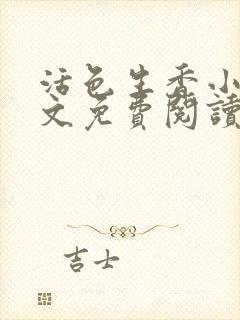 活色生香小
文免費閱讀
吉士